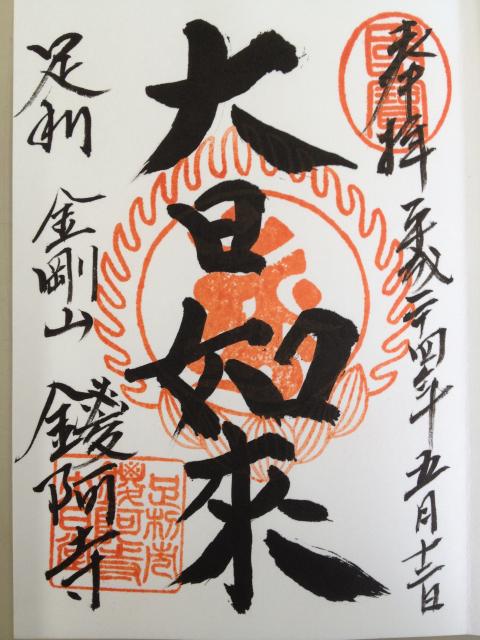 奉拝 平成二十四年五月十二日
國寶
大日如来
足利 金剛山 鑁阿寺